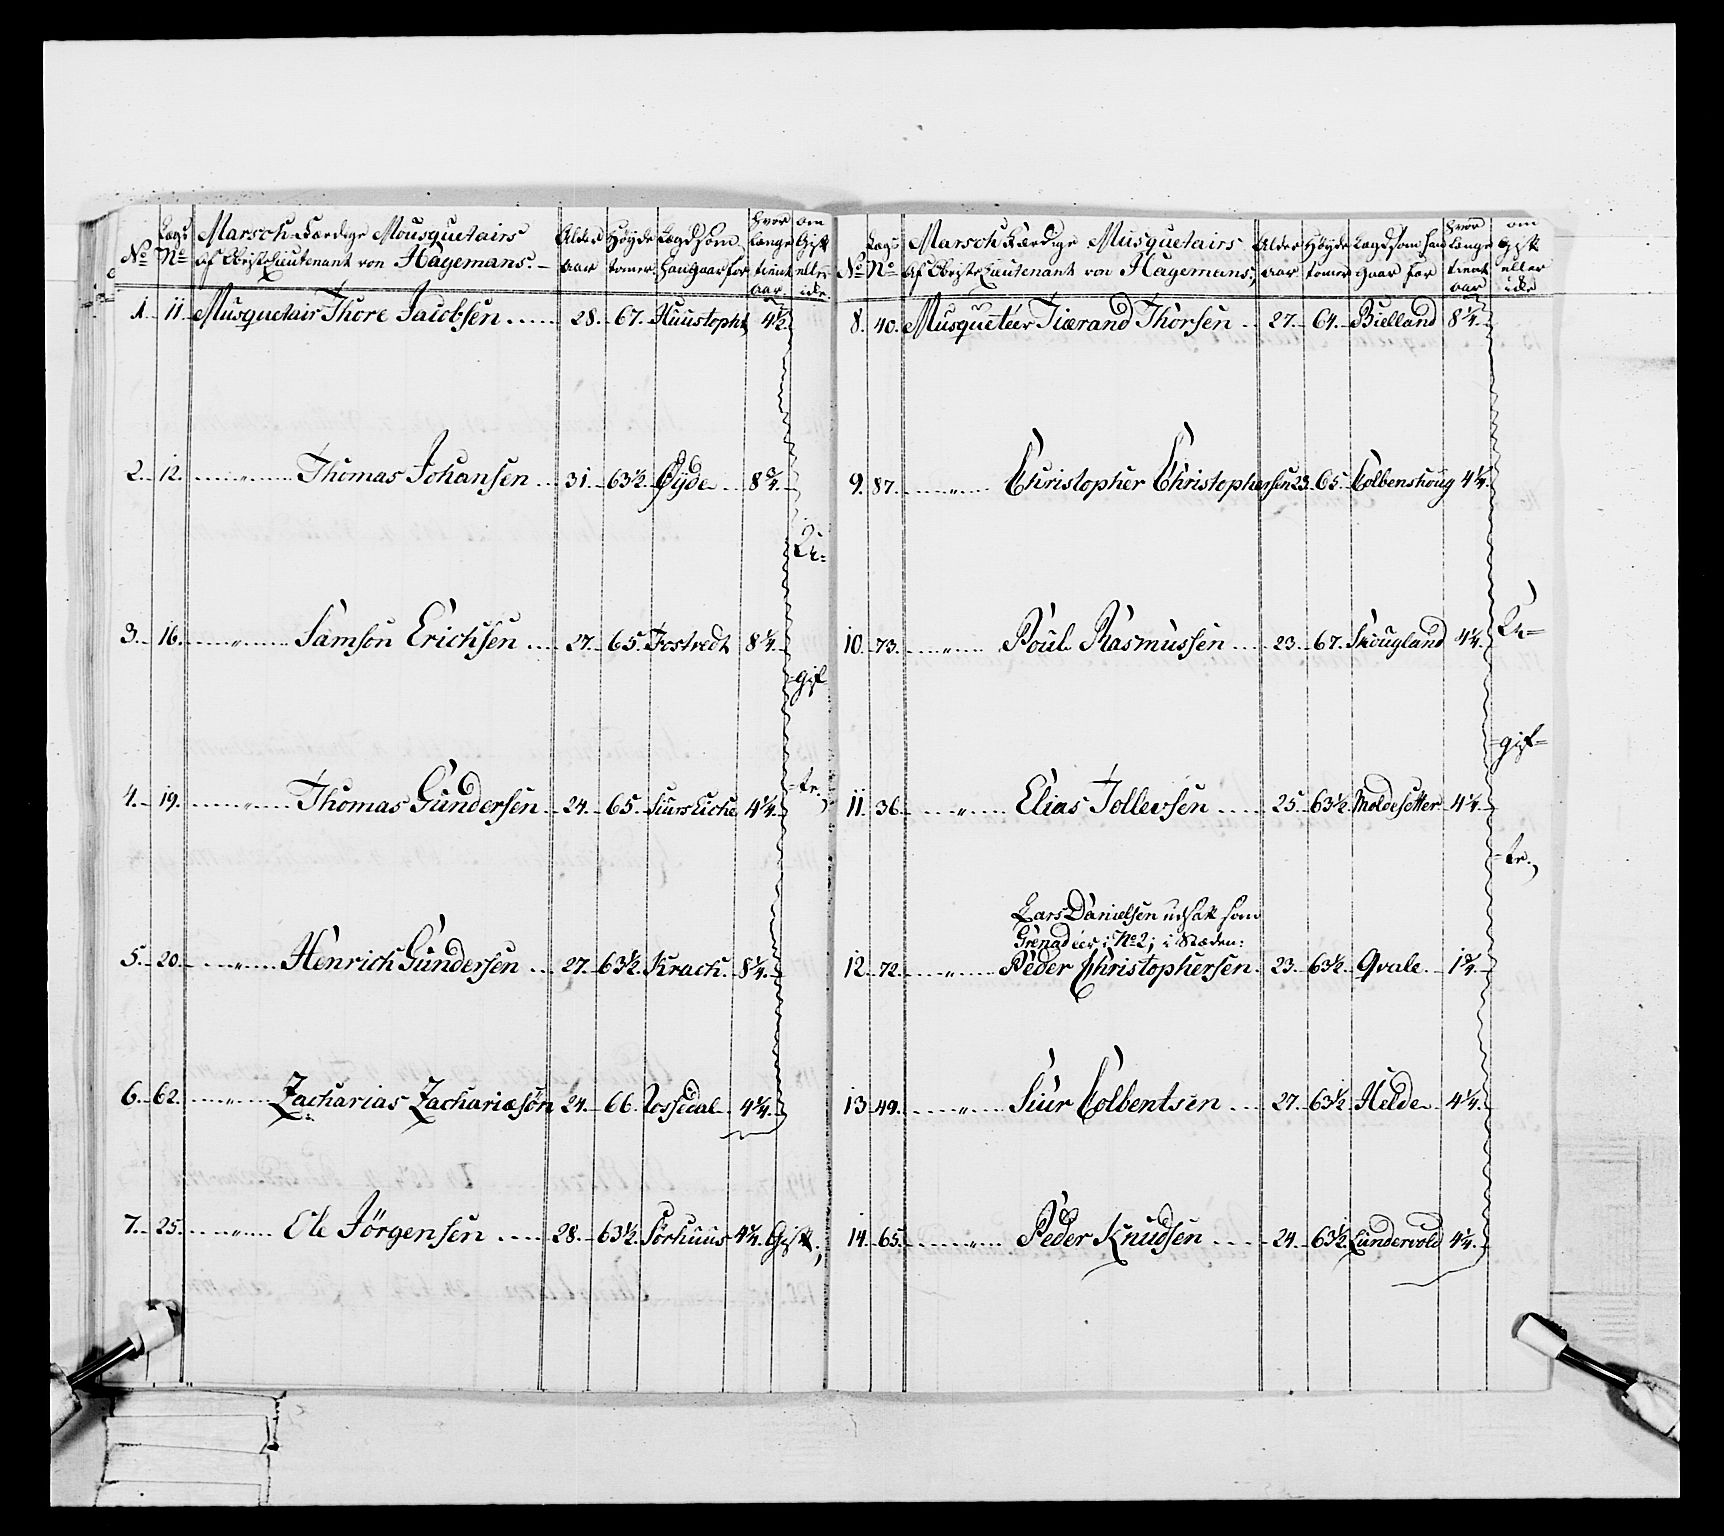 No
Lægs No
Marsch Færdige Mousquetairs
af Obriste Lieutenant von Hagemans.
Alder aar
Høyde tomer
Lægd som han gaar for
hvor længe tient aar
om Gift eller icke
1. 11. Musquetair Thore Jacobsen 28. 67. Huustopht 4½.
2. 12. " Thomas Johansen 31. 63½. Øyde 8¾.
3. 16. " Samson Erichsen 27. 65. Tostvedt 8¼.
4. 19. " Thomas Gundersen 24. 65. Siurs Eiche 4¼.
5. 20. " Henrich Gundersen 27. 63½. Krach. 8¼.
6. 62. " Zacharias Zachariæsøn 24. 66. Rossedal 4¼.
U=
=gif
=te.,
7. 25. " Ole Jörgensen 28. 63½. Sørhuus 4¼. Gift,
No
Lægs No
Marsch Færdige Musquetairs
af Obriste Lieutenant von Hagemans,
Alder aar
Høyde tomer
Lægd som han gaar for
hvor længe tient aar
om Gift eller icke
8. 40. Musqueteer Tiærand Thorsen 27. 64. Bielland 8¼.
9. 87. " Christopher Christophersen 23. 65. Colbenshoug 4¼.
10. 73. " Poul Rasmussen 23. 67. Skougland 4¼.
11. 36. " Elias Tollevsen 25. 63½. Moldesetter 4¼.
Lars Danielsen udsatt som
Grenadeer i No 2; i Stæden:
12. 72. " Peder Christophersen. 23. 63½. Qvale. 1¾.
13. 49. " Siur Colbentsen 27. 63½. Helde 4¼.
14. 65. " Peder Knudsen 24. 63½. Lundervold 4¼.
U=
=gif=
=te.,